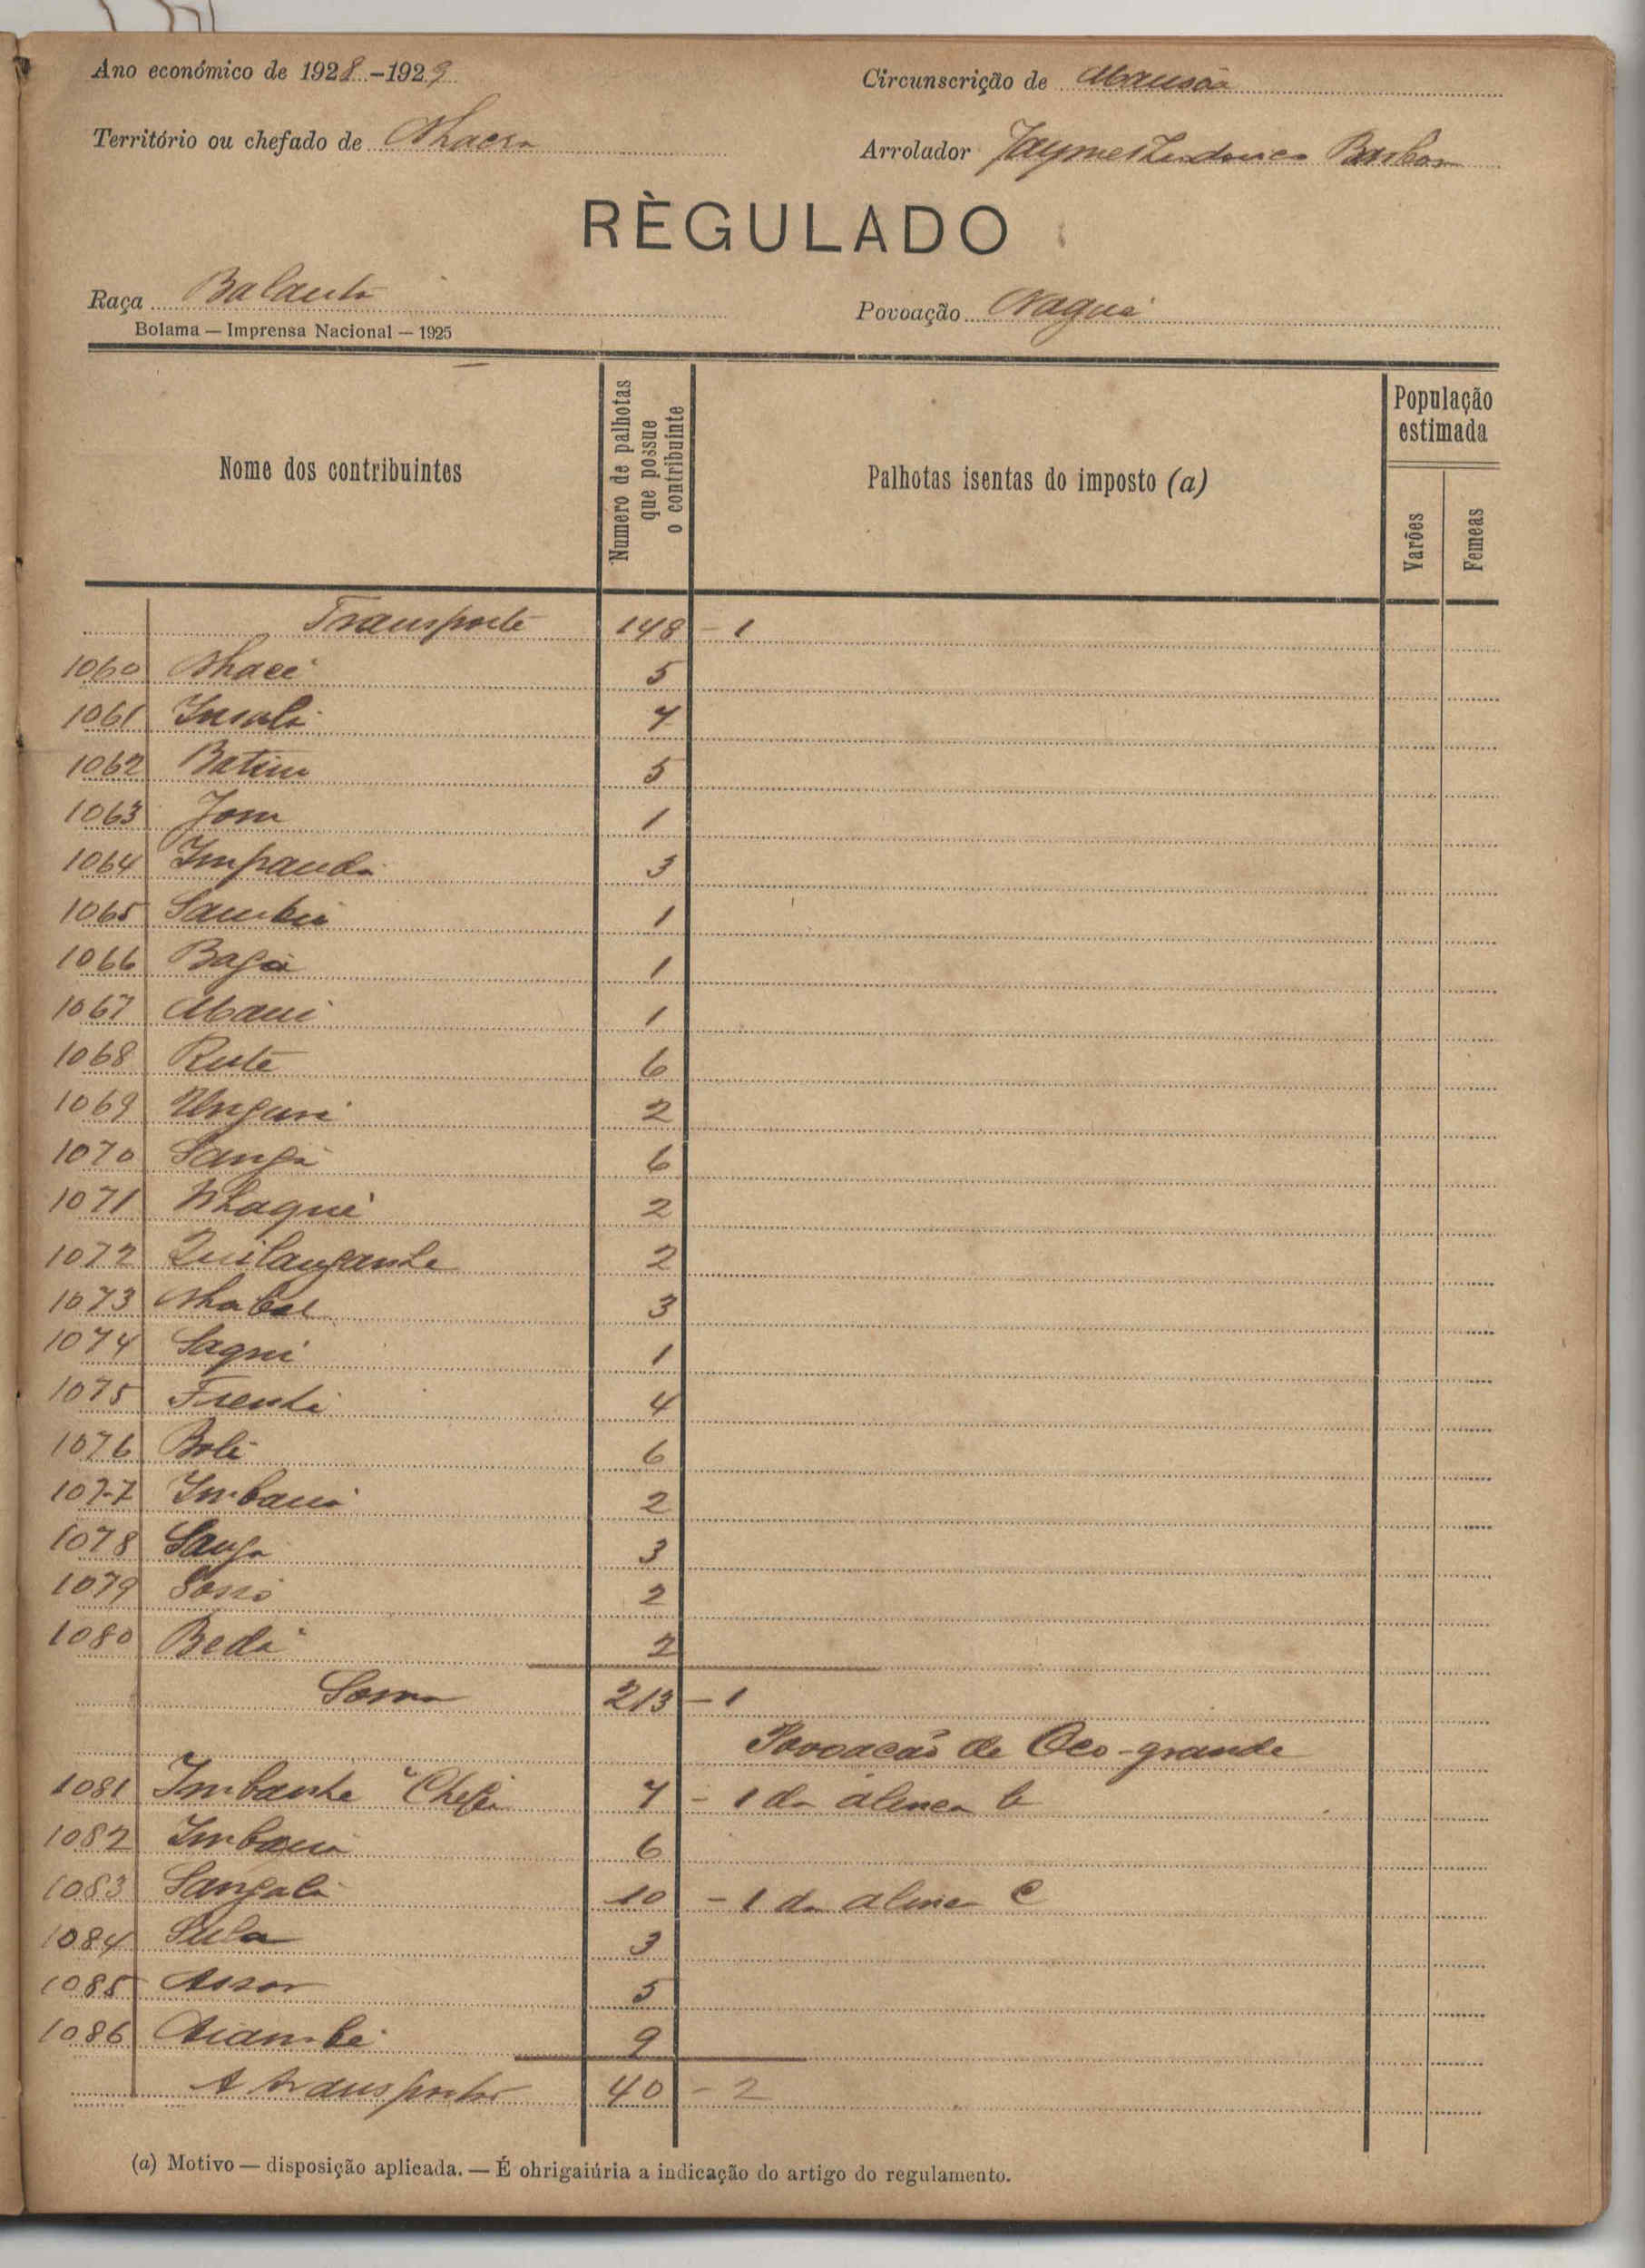 Ano económico de 1928-1929
Circunscrição de Mansôa
Território ou chefado de Nhacra
Arrolador Jayme Ludovico Barbosa
RÈGULADO
Raça Balanta
Povoação Naguè
Bolama — Imprensa Nacional — 1925
Nome dos contribuintes
Numero de palhotas que possue o contribuinte
Palhotas isentas do imposto (a)
População estimada
Varões
Femeas
Transporte 148 - 1
1060 5
1061 Insali 7
1062 5
1063 Jom 1
1064 Impanda 3
1065 1
1066 1
1067 1
1068 Rute 6
1069 Ungani 2
1070 Sanga 6
1071 Nhaguè 2
1072 2
1073 Nhabal 3
1074 Sagni 1
1075 4
1076 6
1077 Imbana 2
1078 Sanga 3
1079 2
1080 Beda 2
Soma 213 - 1
Povoacão de Oco-grande
1081 Imbanhe "Chefe 7 - 1 da alinea b
1082 Imbana 6
1083 10 - 1 da alinea C
1084 Sula 3
1085 5
1086 9
A transportar 40 - 2
(a) Motivo — disposição aplicada. — É ohrigaiúria a indicação do artigo do regulamento.